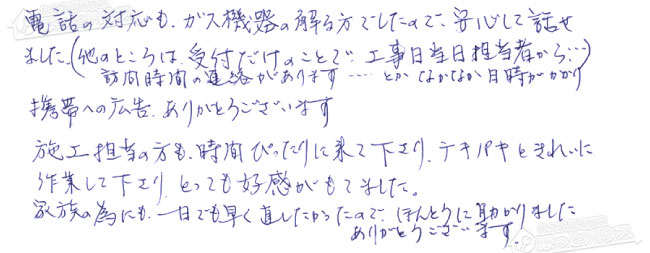 電話の対応も、ガス機器の解る方でしたので、安心して話せ
ました。(他のところは、受付だけのことで、工事日当日担当者から…)
訪問時間の連絡があります……とか なかなか日時がかかり
携帯への広告、ありがとうございます
施工担当の方も、時間ぴったりに来て下さり、テキパキときれいに
作業して下さり、とっても好感がもてました。
家族の為にも、一日でも早く直したかったので、ほんとうに助かりました
ありがとうございます。